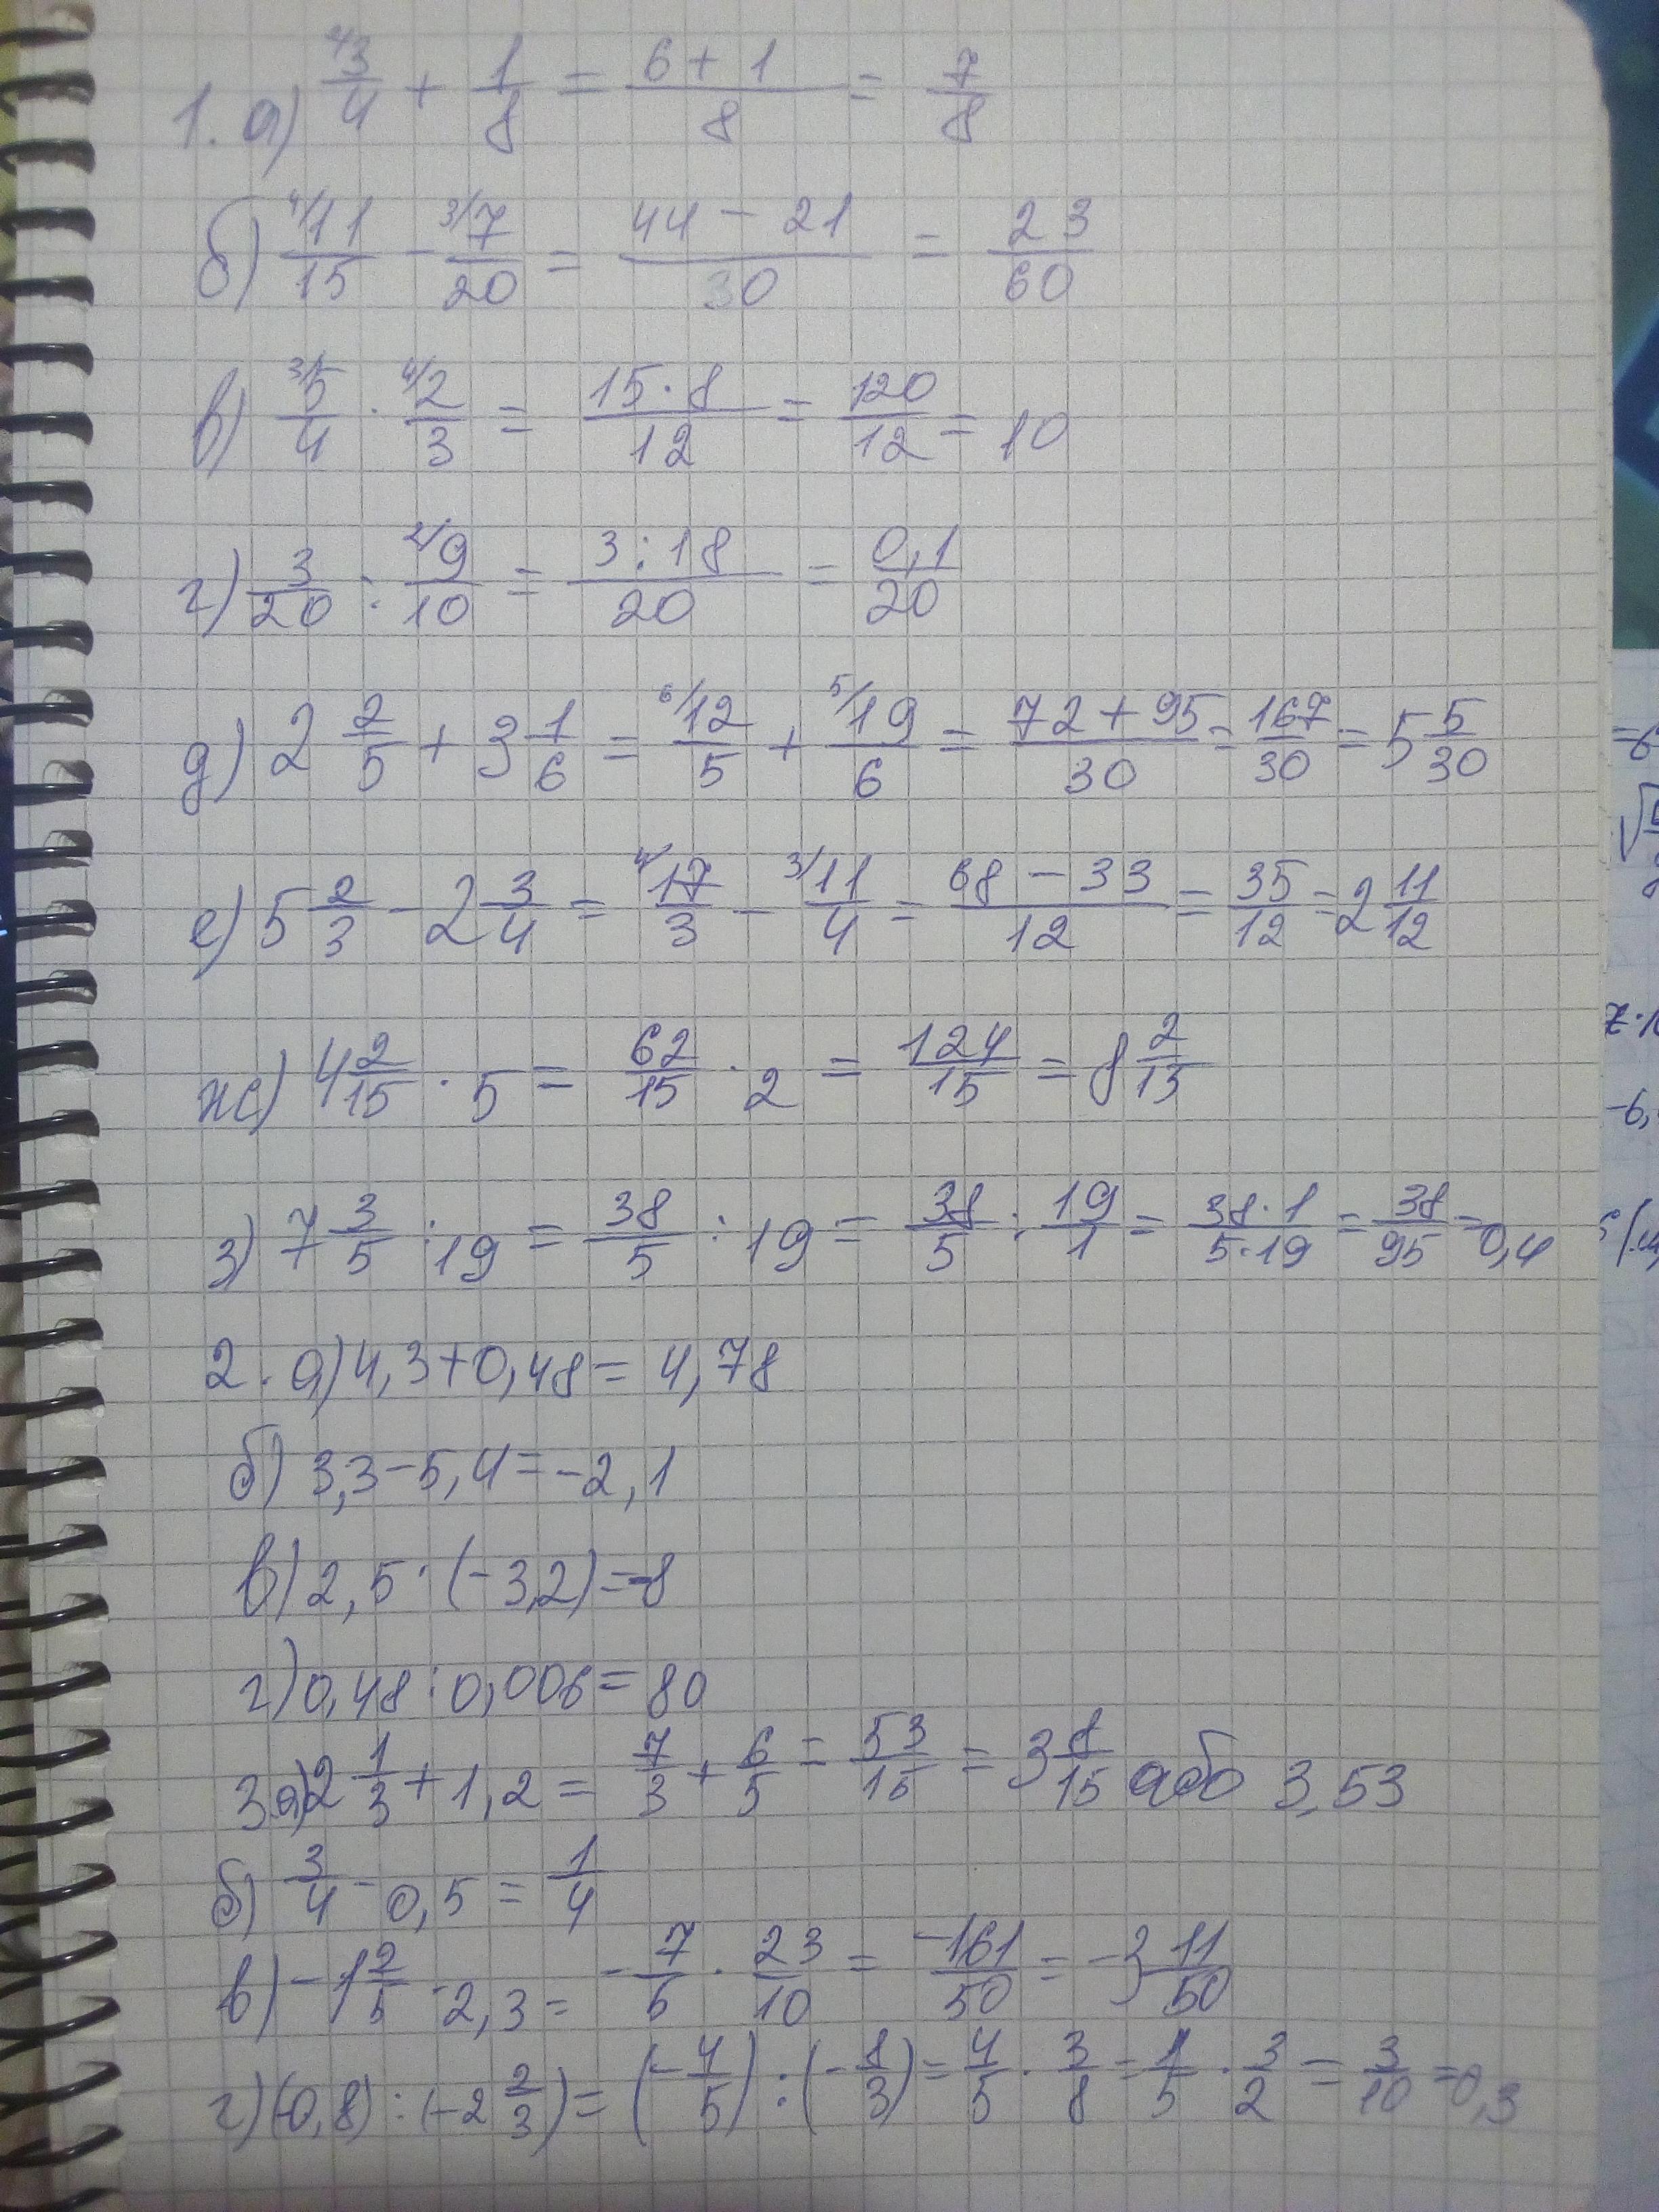 1. а) ²/3/4 + 1/8 = (6 + 1)/8 = 7/8
б) ⁴/11/15 − ³/7/20 = (44 − 21)/30 = 23/60
в) ³/5/4 · ⁴/2/3 = (15 · 8)/12 = 120/12 = 10
г) 3/20 : ²/9/10 = (3 : 18)/20 = 0,1/20
д) 2 2/5 + 3 1/6 = ⁶/12/5 + ⁵/19/6 = (72 + 95)/30 = 167/30 = 5 5/30
е) 5 2/3 − 2 3/4 = ⁴/17/3 − ³/11/4 = (68 − 33)/12 = 35/12 = 2 11/12
ж) 4 2/15 · 5 = 62/15 · 2 = 124/15 = 8 2/15
з) 7 3/5 : 19 = 38/5 : 19 = 38/5 : 19/1 = (38 · 1)/(5 · 19) = 38/95 = 0,4
2. а) 4,3 + 0,48 = 4,78
б) 3,3 − 5,4 = −2,1
в) 2,5 · (−3,2) = −8
г) 0,48 : 0,006 = 80
3 а) 2 1/3 + 1,2 = 7/3 + 6/5 = 53/15 = 3 8/15 або 3,53
б) 3/4 − 0,5 = 1/4
в) −1 2/5 · 2,3 = −7/5 · 23/10 = −161/50 = −3 11/50
г) (−0,8) : (−2 2/3) = (−4/5) : (−8/3) = 4/5 · 3/8 = 1/5 · 3/2 = 3/10 = 0,3